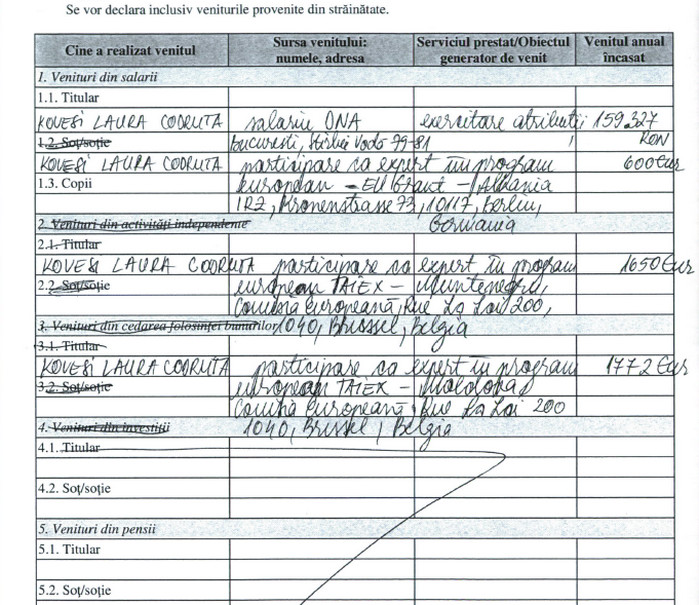 Se vor declara inclusiv veniturile provenite din străinătate.
Cine a realizat venitul Sursa venitului: numele, adresa Serviciul prestat/Obiectul generator de venit Venitul anual încasat
1. Venituri din salarii
1.1. Titular
KOVESI LAURA CODRUTA salariu DNA exercitare atribuții 159.327
1.2. Soț/soție bucuresti, Știrbei Vodo 79-81 RON
KOVESI LAURA CODRUTA participare ca expert în program 600 Eur
1.3. Copii european - EU Grant - Albania
IRZ, Kronenstrasse 73, 10117, Berlin,
2. Venituri din activități independente Germania
2.1. Titular
KOVESI LAURA CODRUTA participare ca expert în program 1650 Eur
2.2. Soț/soție european TAIEX - Muntenegru,
Comisia Europeană, Rue La Loi 200,
3. Venituri din cedarea folosinței bunurilor 1040, Brussel, Belgia
3.1. Titular
KOVESI LAURA CODRUTA participare ca expert în program 1772 Eur
3.2. Soț/soție european TAIEX - Moldova
Comisia Europeană, Rue La Loi 200
4. Venituri din investiții 1040, Brussel, Belgia
4.1. Titular
4.2. Soț/soție
5. Venituri din pensii
5.1. Titular
5.2. Soț/soție